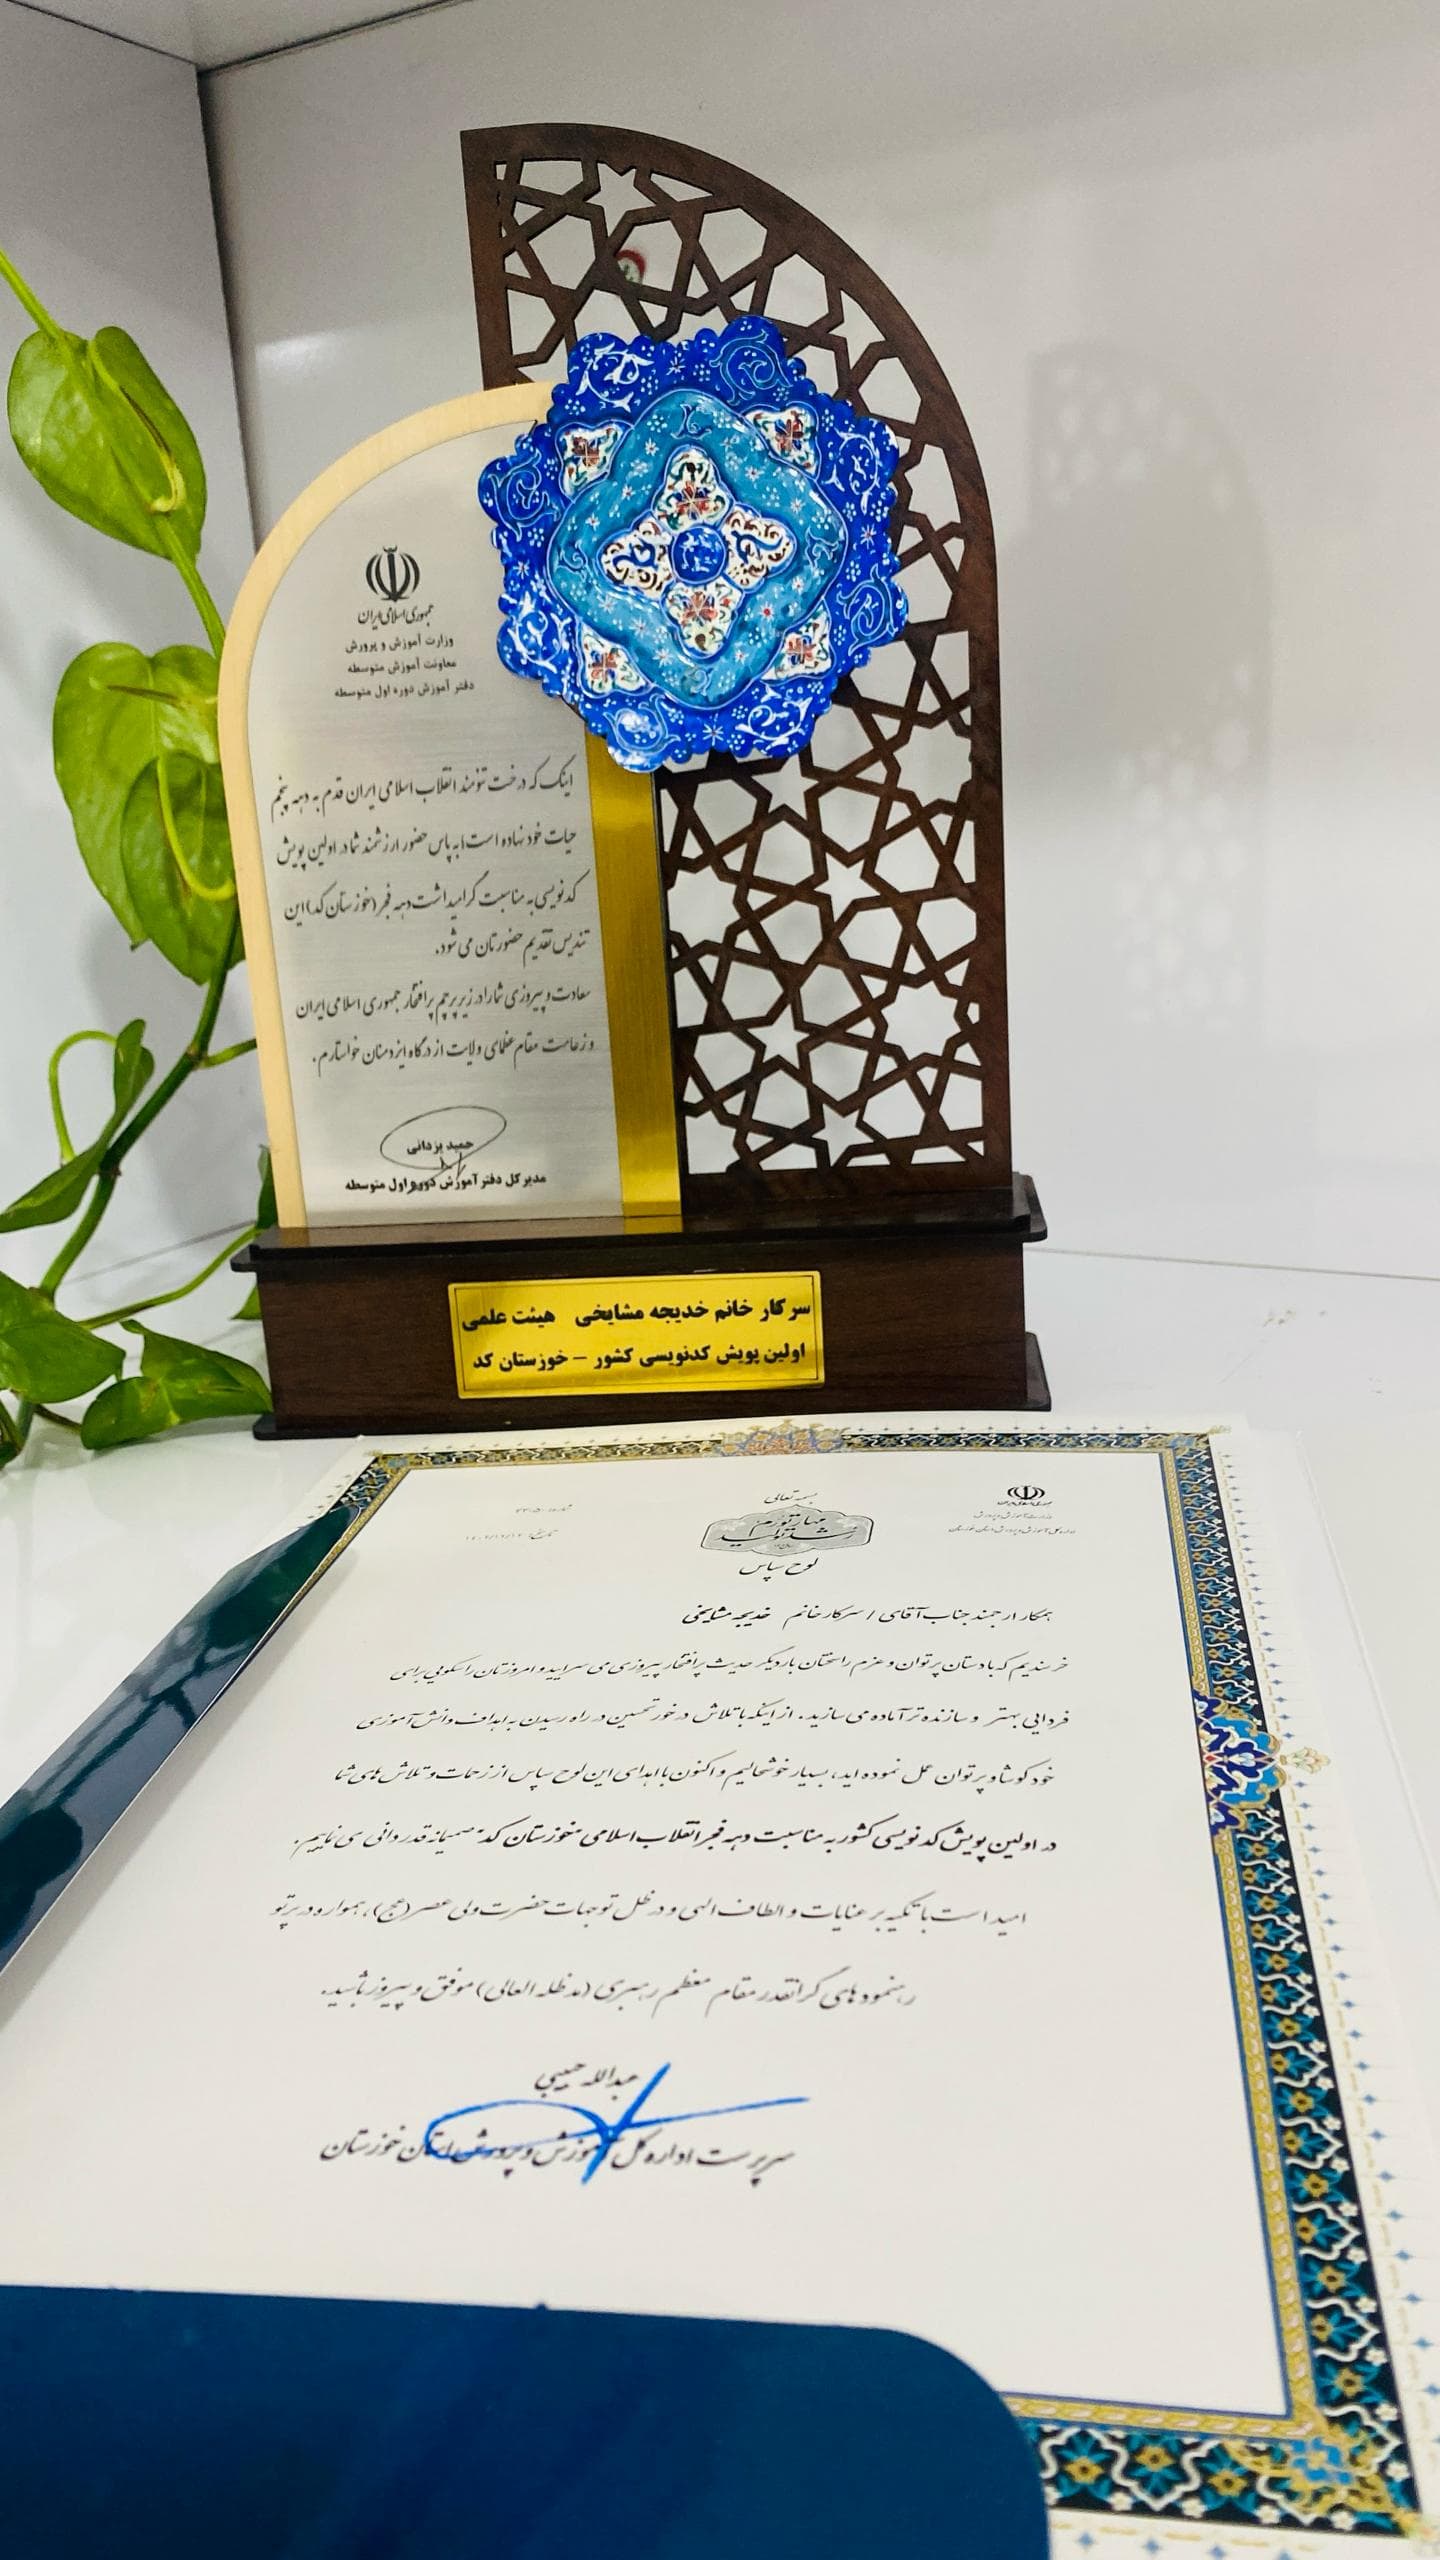 جمهوری اسلامی ایران
وزارت آموزش و پرورش
معاونت آموزش متوسطه
دفتر آموزش دوره اول متوسطه
اینک که درخت تنومند انقلاب اسلامی ایران قدم به دهه پنجم
حیات خود نهاده است به پاس حضور ارزشمند شما در اولین پویش
کدنویسی به مناسبت گرامیداشت دهه فجر (خوزستان کد) این
تندیس تقدیم حضورتان می شود.
سعادت و پیروزی شما را در زیر پرچم پر افتخار جمهوری اسلامی ایران
و زعامت مقام عظمای ولایت از درگاه ایزد منان خواستارم.
حمید یزدانی
مدیر کل دفتر آموزش دوره اول متوسطه
سرکار خانم خدیجه مشایخی هیئت علمی
اولین پویش کدنویسی کشور – خوزستان کد
جمهوری اسلامی ایران
وزارت آموزش و پرورش
اداره کل آموزش و پرورش استان خوزستان
بسمه تعالی
مهار تورم
رشد تولید
لوح سپاس
همکار ارجمند جناب آقای / سرکار خانم خدیجه مشایخی
خرسندیم که با دستان پر توان و عزم راسختان بار دیگر حدیث پر افتخار پیروزی می سرایید و امروزتان را سکویی برای
فردایی بهتر و سازنده تر آماده می سازید. از اینکه با تلاش در خور تحسین در راه رسیدن به اهداف دانش آموزی
خود کوشا و پر توان عمل نموده اید، بسیار خوشحالیم و اکنون با اهدای این لوح سپاس از زحمات و تلاش های شما
در اولین پویش کدنویسی کشور به مناسبت دهه فجر انقلاب اسلامی "خوزستان کد" صمیمانه قدردانی می نماییم.
امید است با تکیه بر عنایات و الطاف الهی و در ظل توجهات حضرت ولی عصر (عج)، همواره در پرتو
رهنمودهای گرانقدر مقام معظم رهبری (مدظله العالی) موفق و پیروز باشید.
عبدالله حبیبی
سرپرست اداره کل آموزش و پرورش استان خوزستان